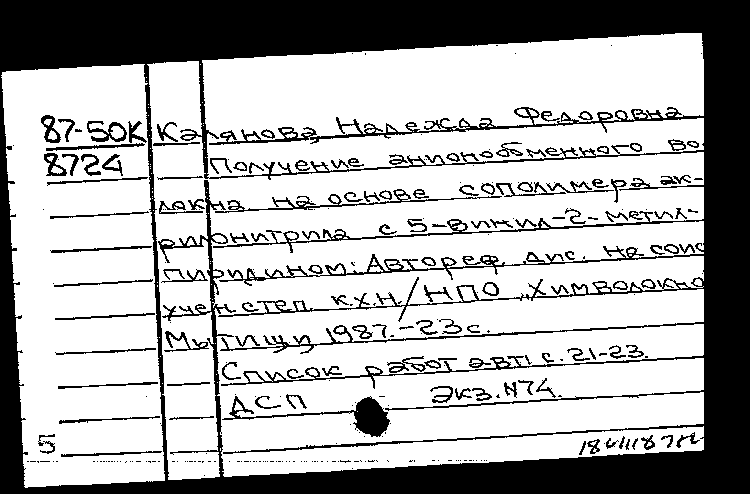 87-50К Калянова Надежда Федоровна
8724 Получение анионообменного во-
локна на основе сополимера ак-
рилонитрила с 5-винил-2-метил-
пиридином: Автореф. дис. на соис
учен. степ. к.х.н. / НПО „Химволокно
Мытищи, 1987.-23с.
Список работ авт.: с. 21-23.
ДСП Экз. №74.
5